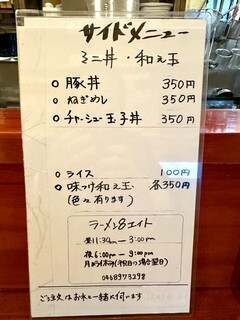 サイドメニュー
ミニ丼・和え玉
○ 豚丼 350円
○ ねぎめし 350円
○ チャーシュー玉子丼 350円
○ ライス 100円
○ 味つけ和え玉 各350円
(色々有ります)
ラーメン8エイト
昼11:30am-3:00pm
夜6:00pm-9:00pm
月よう休み(祝日の場合翌日)
0468973298
ご注文はお水と一緒に伺います